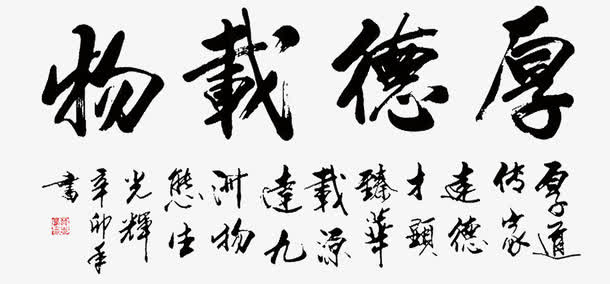 厚德載物
厚道
传家
遠德
才顕
臻華
載源
達九
洲物
態生
光輝
辛卯年
書